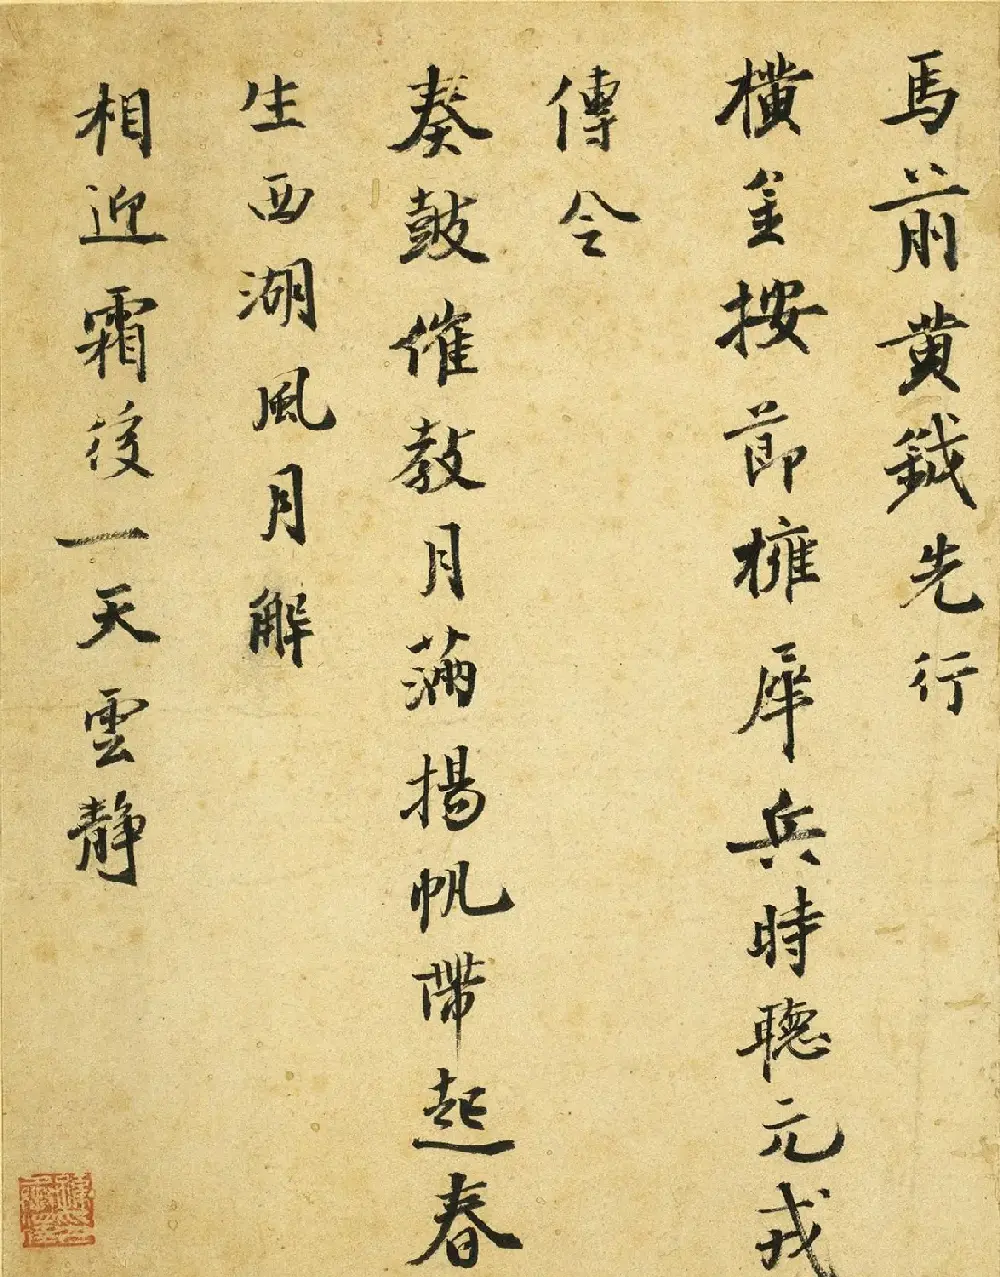 馬前黄鉞先行
橫金按節擁犀兵時聽元戎
傳令
奏鼓催教月滿揚帆帶起春
生西湖風月解
相迎霜後一天雲靜